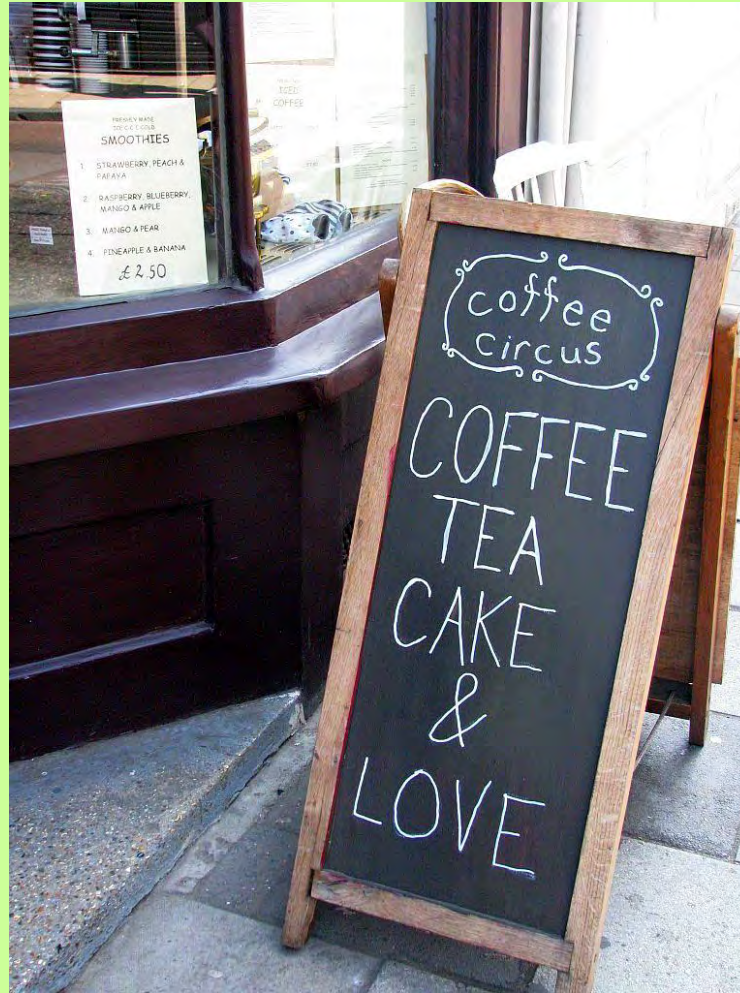 FRESHLY MADE
SMOOTHIES
1. STRAWBERRY, PEACH &
PAPAYA
2. RASPBERRY, BLUEBERRY,
MANGO & APPLE
3. MANGO & PEAR
4. PINEAPPLE & BANANA
£2.50
ICED
COFFEE
coffee
circus
COFFEE
TEA
CAKE
&
LOVE